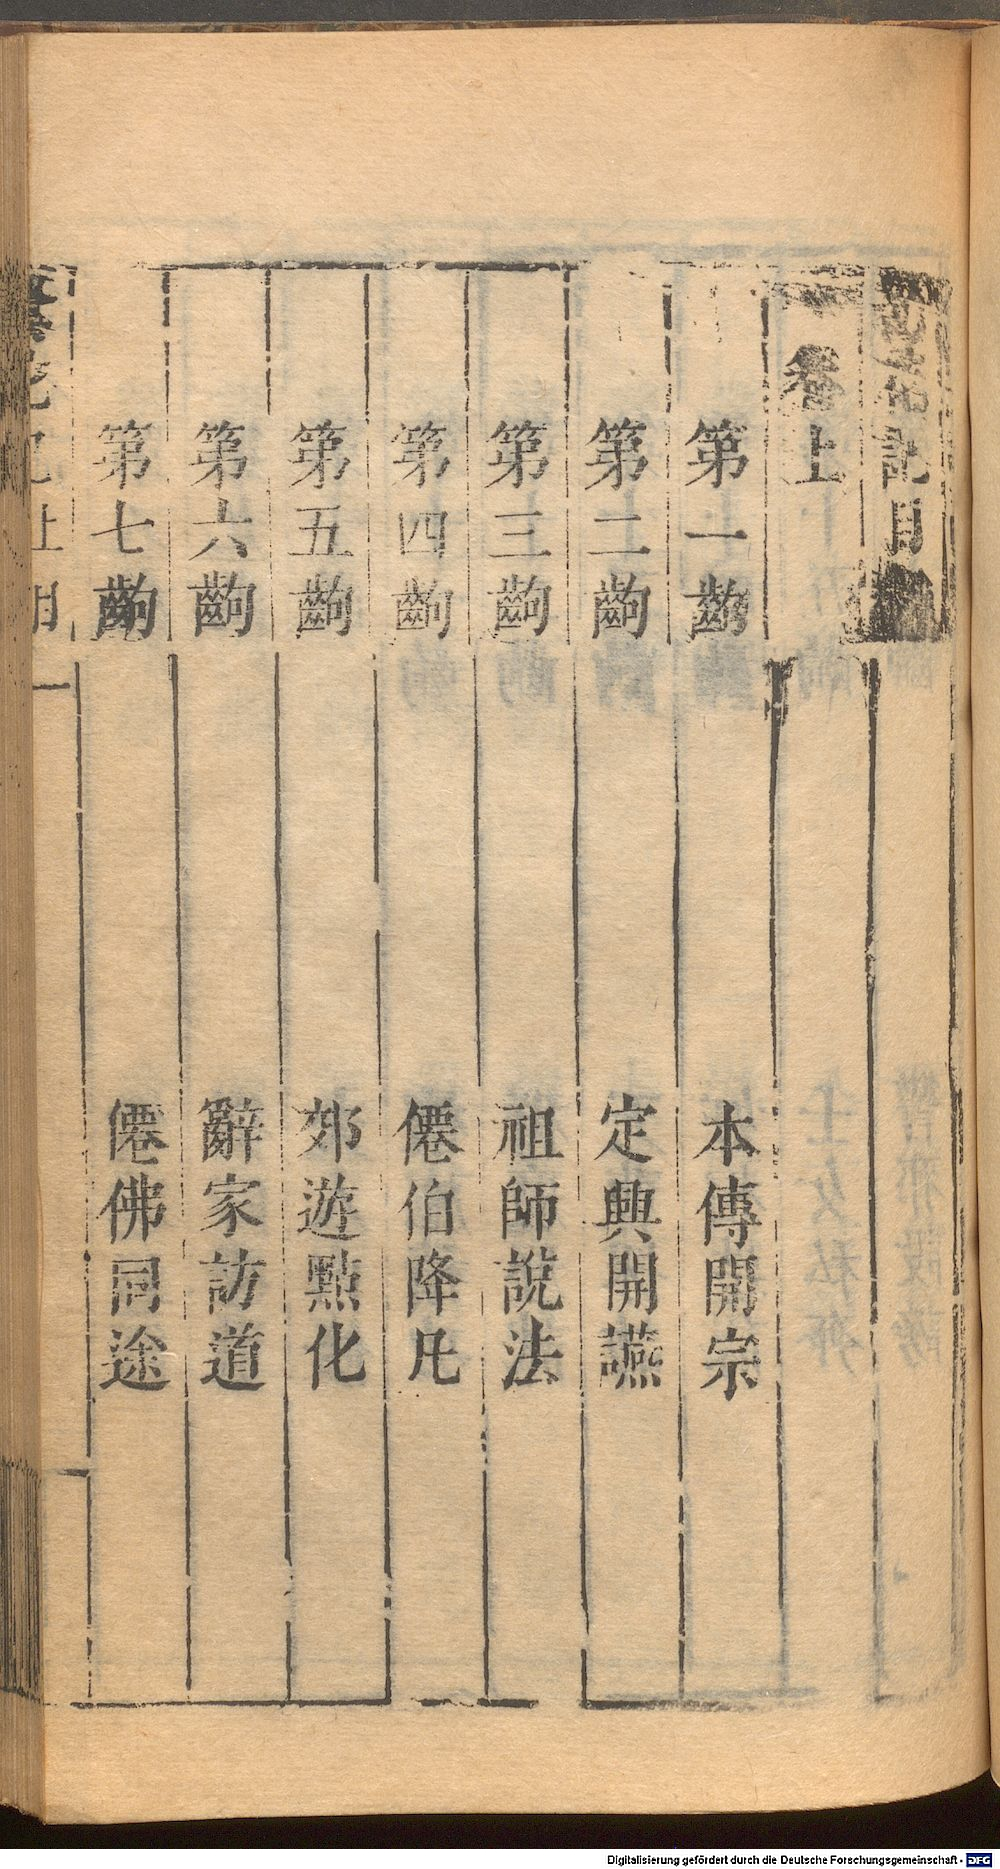 曇花記目
卷上
第一齣 本傳開宗
第二齣 定興開讌
第三齣 祖師說法
第四齣 僊伯降凡
第五齣 郊遊點化
第六齣 辭家訪道
第七齣 僊佛同途
Digitalisierung gefördert durch die Deutsche Forschungsgemeinschaft - DFG